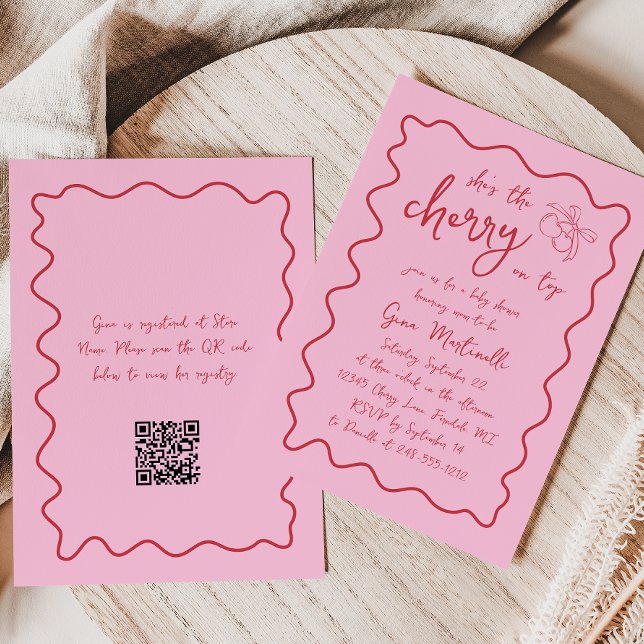 Gina is registered at Store
Name. Please scan the QR code
below to view her registry
she's the
cherry
on top
join us for a baby shower
honoring mom-to-be
Gina Martinelli
Saturday September 22,
at three o'clock in the afternoon
12345 Cherry Lane Ferndale MI
RSVP by September 14
to Danielle at 248-555-1212